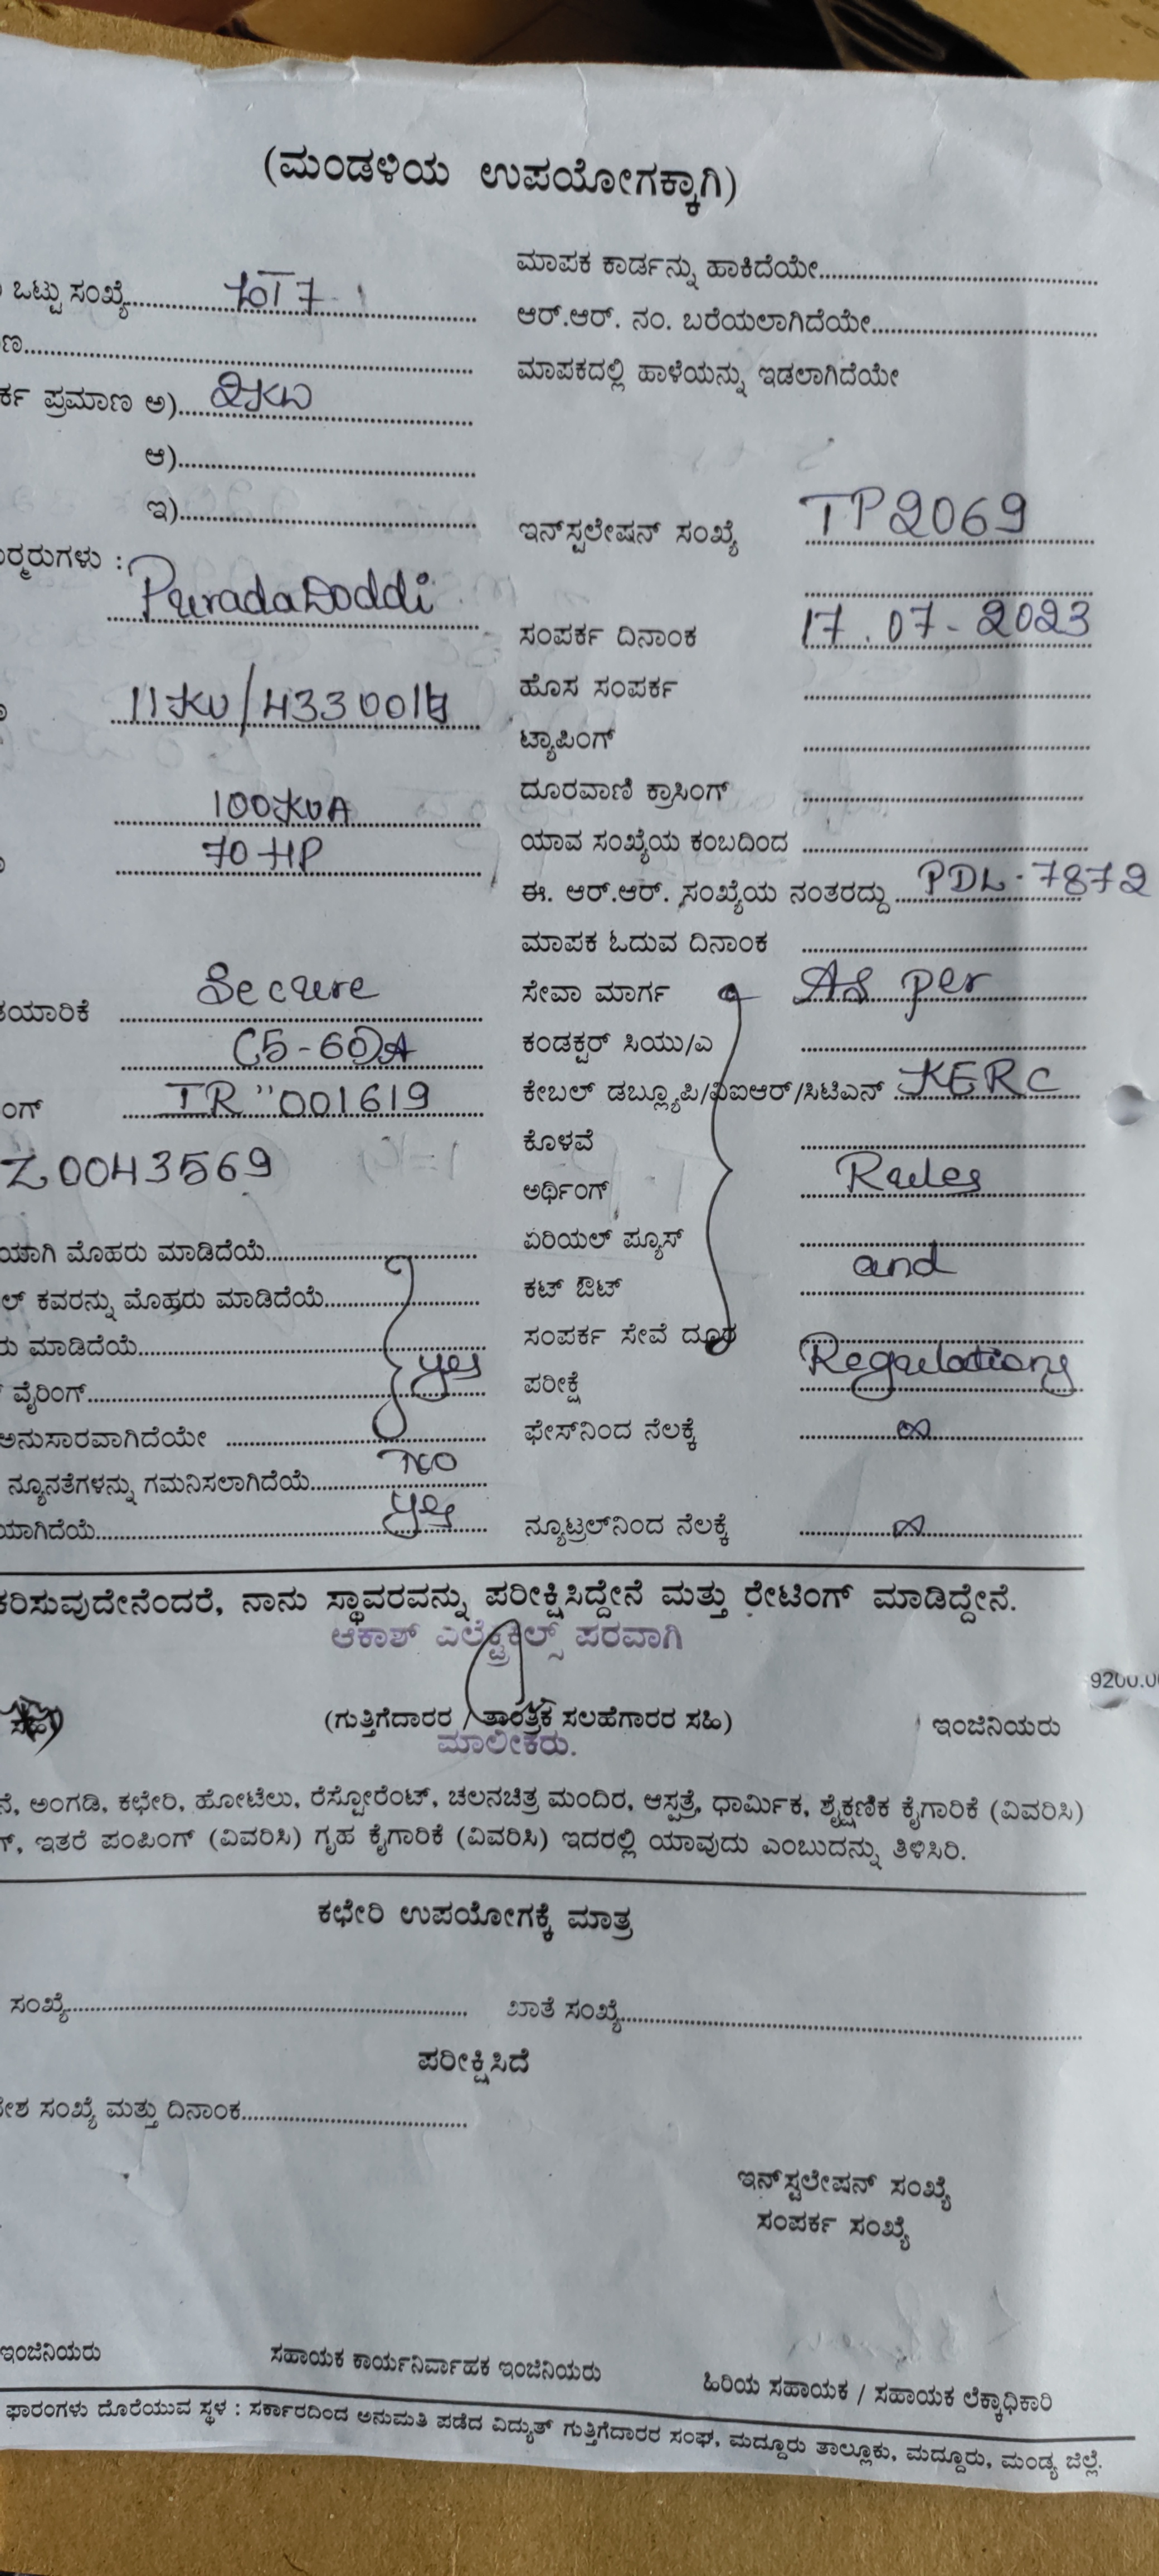 (ಮಂಡಳಿಯ ಉಪಯೋಗಕ್ಕಾಗಿ)
ಒಟ್ಟು ಸಂಖ್ಯೆ
ಣ
ರ್ಕ ಪ್ರಮಾಣ ಅ) 2KW
ಆ)
ಇ)
ರ್ಮರುಗಳು :
PuradaDoddi
11KV/433
100KVA
70 HP
ತಯಾರಿಕೆ Secure
(5-60)A
ಂಗ್ TR "001619
Z0043569
ಯಾಗಿ ಮೊಹರು ಮಾಡಿದೆಯೆ
ಲ್ ಕವರನ್ನು ಮೊಹರು ಮಾಡಿದೆಯೆ
ರು ಮಾಡಿದೆಯೆ
ವೈರಿಂಗ್ yes
ಅನುಸಾರವಾಗಿದೆಯೇ
ನ್ಯೂನತೆಗಳನ್ನು ಗಮನಿಸಲಾಗಿದೆಯೆ No
ಯಾಗಿದೆಯೆ yes
ಮಾಪಕ ಕಾರ್ಡನ್ನು ಹಾಕಿದೆಯೇ
ಆರ್.ಆರ್. ನಂ. ಬರೆಯಲಾಗಿದೆಯೇ
ಮಾಪಕದಲ್ಲಿ ಹಾಳೆಯನ್ನು ಇಡಲಾಗಿದೆಯೇ
ಇನ್‌ಸ್ಟಲೇಷನ್ ಸಂಖ್ಯೆ TP2069
ಸಂಪರ್ಕ ದಿನಾಂಕ 17.07-2023
ಹೊಸ ಸಂಪರ್ಕ
ಟ್ಯಾಪಿಂಗ್
ದೂರವಾಣಿ ಕ್ರಾಸಿಂಗ್
ಯಾವ ಸಂಖ್ಯೆಯ ಕಂಬದಿಂದ
ಈ. ಆರ್.ಆರ್. ಸಂಖ್ಯೆಯ ನಂತರದ್ದು PDL-7872
ಮಾಪಕ ಓದುವ ದಿನಾಂಕ
ಸೇವಾ ಮಾರ್ಗ As per
ಕಂಡಕ್ಟರ್ ಸಿಯು/ಎ
ಕೇಬಲ್ ಡಬ್ಲ್ಯೂಪಿ/ವಿಐಆರ್/ಸಿಟಿಎನ್ KERC
ಕೊಳವೆ
ಅರ್ಥಿಂಗ್ Rules
ಏರಿಯಲ್ ಫ್ಯೂಸ್
ಕಟ್ ಔಟ್ and
ಸಂಪರ್ಕ ಸೇವೆ ದೂರ
ಪರೀಕ್ಷೆ Regulations
ಫೇಸ್‌ನಿಂದ ನೆಲಕ್ಕೆ ∞
ನ್ಯೂಟ್ರಲ್‌ನಿಂದ ನೆಲಕ್ಕೆ ∞
ಕರಿಸುವುದೇನೆಂದರೆ, ನಾನು ಸ್ಥಾವರವನ್ನು ಪರೀಕ್ಷಿಸಿದ್ದೇನೆ ಮತ್ತು ರೇಟಿಂಗ್ ಮಾಡಿದ್ದೇನೆ.
ಆಕಾಶ್ ಎಲೆಕ್ಟ್ರಿಕಲ್ಸ್ ಪರವಾಗಿ
9200.0
(ಗುತ್ತಿಗೆದಾರರ / ತಾಂತ್ರಿಕ ಸಲಹೆಗಾರರ ಸಹಿ) ಇಂಜಿನಿಯರು
ಮಾಲೀಕರು.
ನೆ, ಅಂಗಡಿ, ಕಛೇರಿ, ಹೋಟೆಲು, ರೆಸ್ಟೋರೆಂಟ್, ಚಲನಚಿತ್ರ ಮಂದಿರ, ಆಸ್ಪತ್ರೆ, ಧಾರ್ಮಿಕ, ಶೈಕ್ಷಣಿಕ ಕೈಗಾರಿಕೆ (ವಿವರಿಸಿ)
ಗ್, ಇತರೆ ಪಂಪಿಂಗ್ (ವಿವರಿಸಿ) ಗೃಹ ಕೈಗಾರಿಕೆ (ವಿವರಿಸಿ) ಇದರಲ್ಲಿ ಯಾವುದು ಎಂಬುದನ್ನು ತಿಳಿಸಿರಿ.
ಕಛೇರಿ ಉಪಯೋಗಕ್ಕೆ ಮಾತ್ರ
ಸಂಖ್ಯೆ ಖಾತೆ ಸಂಖ್ಯೆ
ಪರೀಕ್ಷಿಸಿದೆ
ೇಶ ಸಂಖ್ಯೆ ಮತ್ತು ದಿನಾಂಕ
ಇನ್‌ಸ್ಟಲೇಷನ್ ಸಂಖ್ಯೆ
ಸಂಪರ್ಕ ಸಂಖ್ಯೆ
ಇಂಜಿನಿಯರು ಸಹಾಯಕ ಕಾರ್ಯನಿರ್ವಾಹಕ ಇಂಜಿನಿಯರು ಹಿರಿಯ ಸಹಾಯಕ / ಸಹಾಯಕ ಲೆಕ್ಕಾಧಿಕಾರಿ
ಫಾರಂಗಳು ದೊರೆಯುವ ಸ್ಥಳ : ಸರ್ಕಾರದಿಂದ ಅನುಮತಿ ಪಡೆದ ವಿದ್ಯುತ್ ಗುತ್ತಿಗೆದಾರರ ಸಂಘ, ಮದ್ದೂರು ತಾಲ್ಲೂಕು, ಮದ್ದೂರು, ಮಂಡ್ಯ ಜಿಲ್ಲೆ.